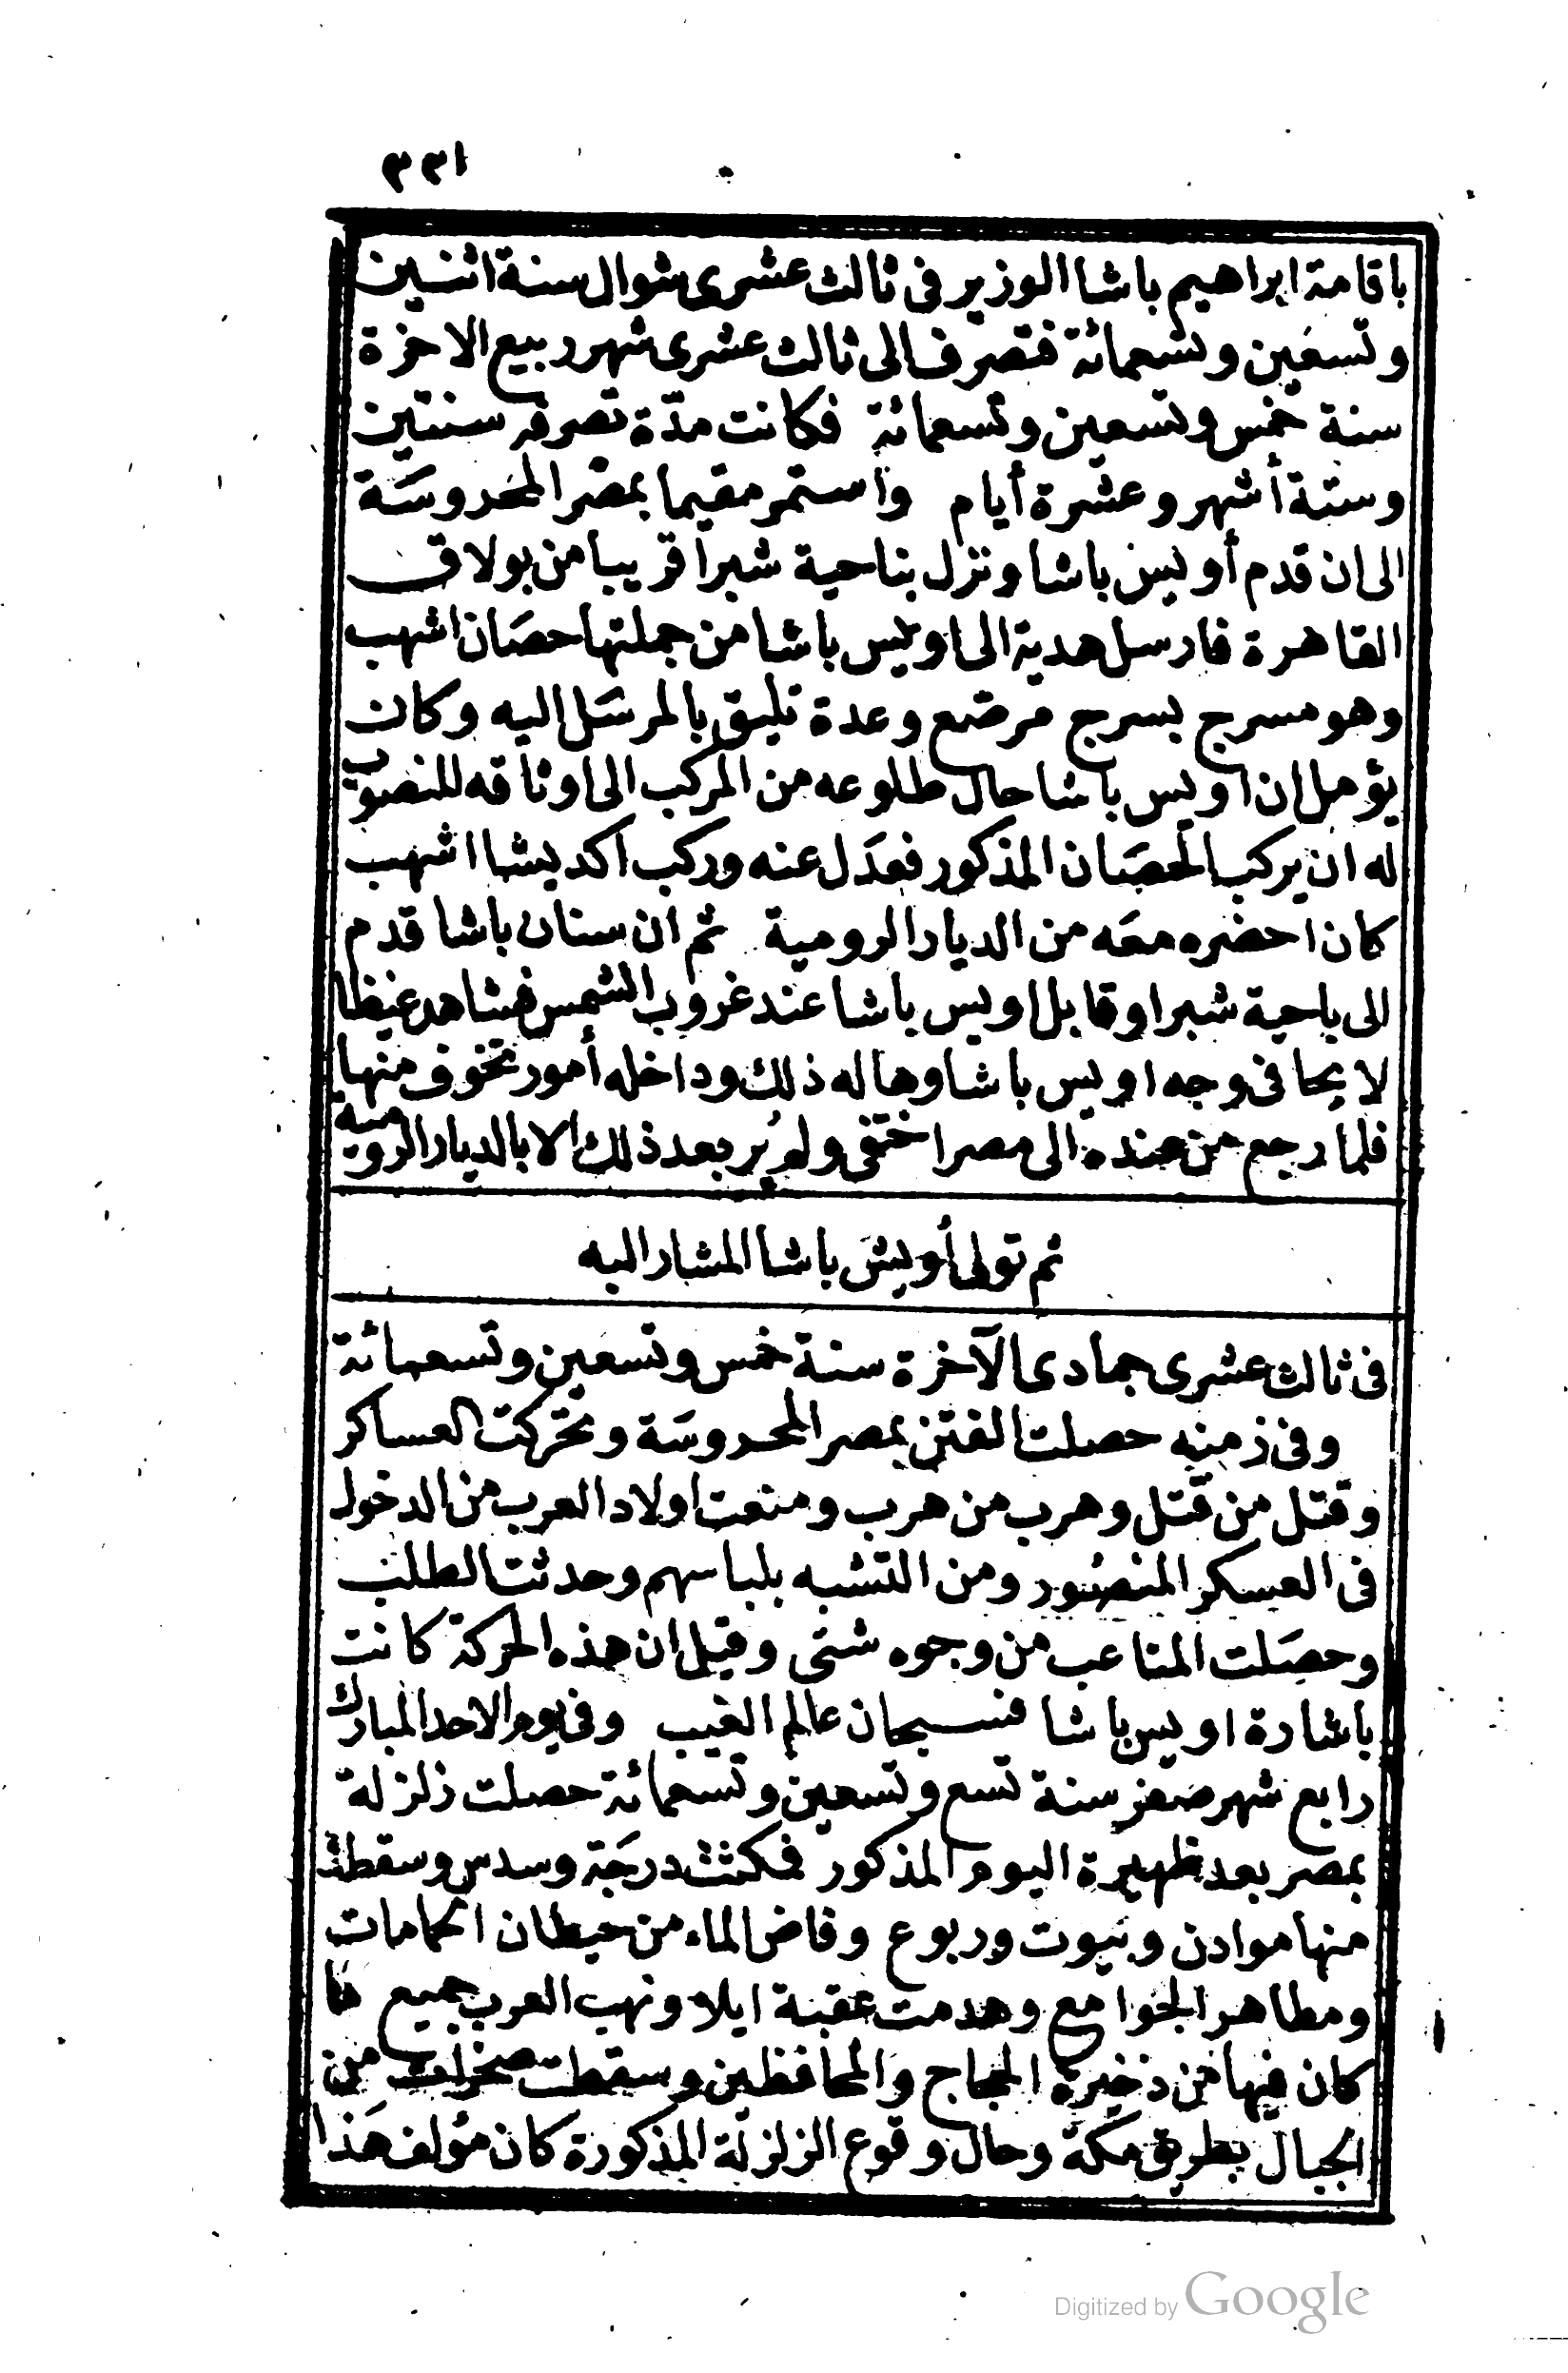 ٣٣١
باقامة ابراهيم باشا الوزير فى ثالث عشرى شوال سنة اثنين
وتسعين وتسعمائة فتصرف الى ثالث عشرى شهر ربيع الاخرة
سنة خمس وتسعين وتسعمائة فكانت مدّة تصرفه سنتين
وستة أشهر وعشرة أيام واستمر مقيما بمصر المحروسة
الى ان قدم أويس باشا ونزل بناحية شبرا قريبا من بولاق
القاهرة فارسل هدية الى اويس باشا من جملتها حصان اشهب
وهو مسرج بسرج مرصع وعدة تليق بالمرسل اليه وكان
يؤمل ان اويس باشا حال طلوعه من المركب الى اوثاقه المنصوب
له ان يركب الحصان المذكور فعدل عنه وركب اكديشا اشهب
كان احضره معه من الديار الرومية ثم ان سنان باشا قدم
الى ياحية شبرا وقابل اويس باشا عند غروب الشمس فشاهد غيظا
لا يحا فى وجه اويس باشا وهاله ذلك وداخله أمور تخوف منها
فلما رجع من عنده الى مصر اختفى ولم يُر بعد ذلك الا بالديار الرومية
ثم تولى أويس باشا المشار اليه
فى ثالث عشرى جمادى الآخرة سنة خمس وتسعين وتسعمائة
وفى زمنه حصلت الفتن بمصر المحروسة وتحركت العساكر
وقتل من قتل وهرب من هرب ومنعت اولاد العرب من الدخول
فى العسكر المنصُور ومن التشبه بلباسهم وحدثت الطلب
وحصَلت المتاعب من وجوه شتى وقيل ان هذه الحركة كانت
باشارة اويس باشا فسبحان عالم الغيب وفى يوم الاحد المبارك
رابع شهر صفر سنة تسع وتسعين وتسعمائة حصلت زلزلة
بمصر بعد ظهيرة اليوم المذكور فمكثت درجَة وسدس وسقطت
منها موادن وبيوت وربوع وفاض الماء من حيطان الحمامات
ومطاهر الجوامع وهدمت عقبة ايلا ونهب العرب جميع ما
كان فيها من ذخيرة الحجاج والمحافظين وسقطت صخرات من
الجبال بطريق مكة وحال وقوع الزلزلة المذكورة كان مؤلف هَذا
Digitized by Google